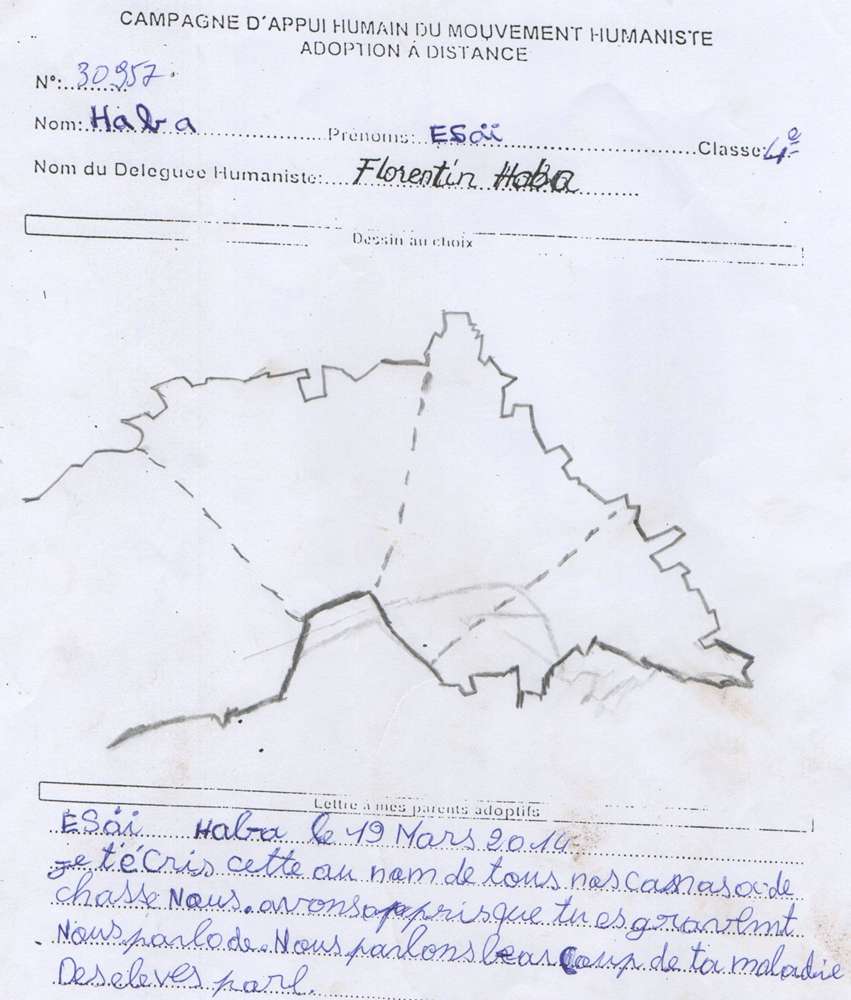 CAMPAGNE D'APPUI HUMAIN DU MOUVEMENT HUMANISTE
ADOPTION À DISTANCE
N°: 30957
Nom: Haba Prénoms: ESaï Classe: 4e
Nom du Deleguee Humaniste: Florentin Haba
Dessin au choix
Lettre à mes parents adoptifs
ESaï Haba le 19 Mars 2014
Je t'écris cette au nom de tous nos de
chasse Nous avons appris que tu es
Nous parlode. Nous parlons beaucoup de ta maladie
Des eleves parl.